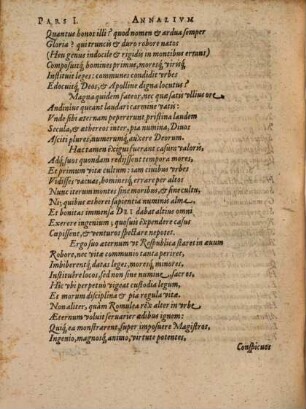 PARS I. ANNALIVM
Quantus honos illi? quod nomen & ardua semper
Gloria? qui truncis & duro robore natos
(Heu genus indocile & rigidis in montibus errans)
Composuitq́, homines primus, moresq́, virisq́,
Instituit leges: communes condidit vrbes
Edocuitq́, Deos, & Apolline digna locutus?
Magna quidem fateor, nec qua satis vllius ore
Andinius queant laudari carmine vatis:
Vnde sibi aternam peperunt pristina laudem
Secula, & athereos inter, pia numina, Diuos
Asciti plures, numerumq́, auxere Deorum.
Haec tamen exiguè fuerant casura valoris,
Adq́, suos quondam redissent tempora mores,
Et primum vitæ cultum: iam ciuibus vrbes
Vidisses vacuas, hominesq́, errare per altos
Nunc iterum montes sine moribus, & sine cultu,
Ni; quibus athereï sapientia numinis alma
Et bonitas immensa DEI dabat altius omni
Exerere ingenium; quo suis expendere casus
Capissent, & venturos spectare nepotes.
Ergo suo aternum vt Respublica staret in æuum
Robore, nec vitæ communis tanta perirët,
Imbiberentq́, datas leges, moresq́, minores,
Instituêre locos, sed non sine numine sacros,
Hic vbi perpetuò vigeat custodia legum,
Et morum disciplina & pia regula vitæ.
Non aliter, quàm Romulea rëx alter in vrbe
Æternum voluit seruarier ædibus ignem:
Quiq́, ea monstrarent, super imposuere Magistros,
Ingenio, magnoq́, animo, virtute potentes,
Conspicuos